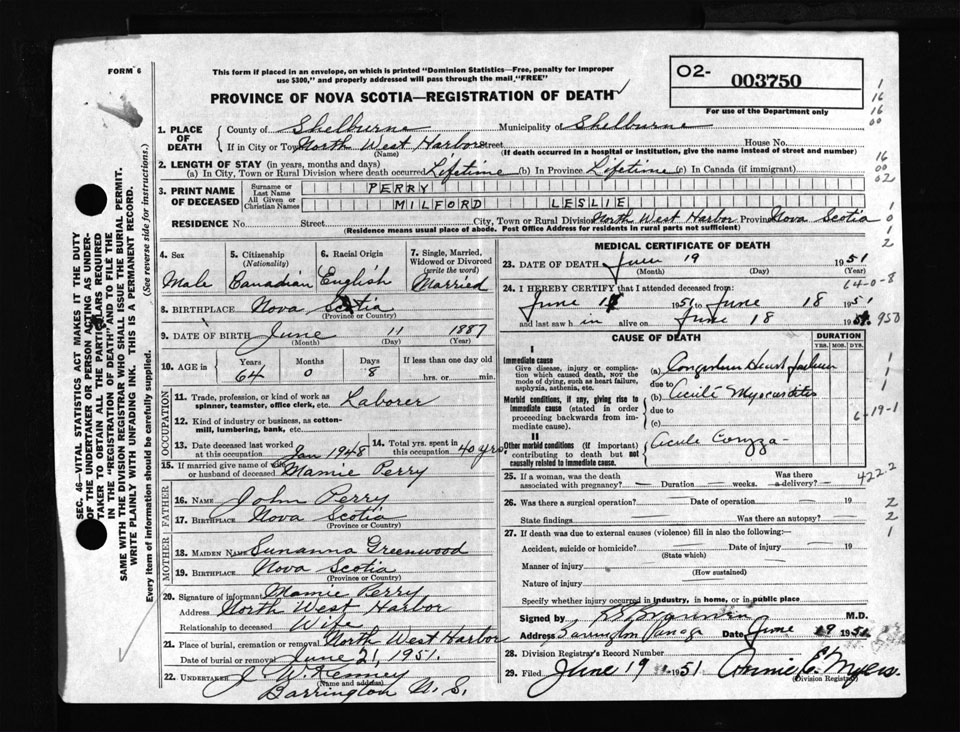 FORM 6
This form if placed in an envelope, on which is printed "Dominion Statistics—Free, penalty for improper
use $300," and properly addressed will pass through the mail "FREE"
O2- 003750
For use of the Department only
PROVINCE OF NOVA SCOTIA—REGISTRATION OF DEATH
1. PLACE OF DEATH
County of Shelburne Municipality of Shelburne
If in City or Town North West Harbor Street House No.
(Name) (If death occurred in a hospital or institution, give the name instead of street and number)
2. LENGTH OF STAY (in years, months and days)
(a) In City, Town or Rural Division where death occurred Lifetime (b) In Province Lifetime (c) In Canada (if immigrant)
3. PRINT NAME OF DECEASED
Surname or Last Name PERRY
All Given or Christian Names MILFORD LESLIE
RESIDENCE No. Street City, Town or Rural Division North West Harbor Province Nova Scotia
(Residence means usual place of abode. Post Office Address for residents in rural parts not sufficient)
4. Sex 5. Citizenship (Nationality) 6. Racial Origin 7. Single, Married, Widowed or Divorced (write the word)
Male Canadian English Married
8. BIRTHPLACE Nova Scotia
(Province or Country)
9. DATE OF BIRTH June 11 1887
(Month) (Day) (Year)
10. AGE in Years Months Days If less than one day old
64 0 8 hrs. or min.
OCCUPATION
11. Trade, profession, or kind of work as
spinner, teamster, office clerk, etc. Laborer
12. Kind of industry or business, as cotton-
mill, lumbering, bank, etc.
13. Date deceased last worked at this occupation Jan 1948
14. Total yrs. spent in this occupation 40 yrs.
15. If married give name of wife or husband of deceased Mamie Perry
FATHER
16. NAME John Perry
17. BIRTHPLACE Nova Scotia
(Province or Country)
MOTHER
18. MAIDEN NAME Sunanna Greenwood
19. BIRTHPLACE Nova Scotia
(Province or Country)
20. Signature of informant Mamie Perry
Address North West Harbor
Relationship to deceased Wife
21. Place of burial, cremation or removal North West Harbor
Date of burial or removal June 21, 1951.
22. UNDERTAKER J W. Kenney
(Name and address)
Barrington N. S.
MEDICAL CERTIFICATE OF DEATH
23. DATE OF DEATH June 19 1951
(Month) (Day) (Year)
64-0-8
24. I HEREBY CERTIFY that I attended deceased from:
June 1951 to June 18 1951
and last saw h im alive on June 18 1951 950
CAUSE OF DEATH
DURATION
YRS. MOS. DYS.
I
Immediate cause
Give disease, injury or complication which caused death, not the mode of dying, such as heart failure, asphyxia, asthenia, etc.
(a) Congestive Heart failure
due to
Morbid conditions, if any, giving rise to immediate cause (stated in order proceeding backwards from immediate cause).
(b) Acute Myocarditis
due to
(c)
6-19-1
II
Other morbid conditions (if important) contributing to death but not causally related to immediate cause.
Acute Coryza
422-2
25. If a woman, was the death associated with pregnancy? Duration weeks. Was there a delivery?
26. Was there a surgical operation? Date of operation 19
State findings Was there an autopsy?
27. If death was due to external causes (violence) fill in also the following:
Accident, suicide or homicide? Date of injury 19
(State which)
Manner of injury
(How sustained)
Nature of injury
Specify whether injury occurred in industry, in home, or in public place
Signed by M.D.
Address Barrington Passage Date June 19 1951
28. Division Registrar's Record Number
29. Filed June 19 1951 Annie E. Myers.
(Division Registrar)
SEC. 46—VITAL STATISTICS ACT MAKES IT THE DUTY
OF THE UNDERTAKER OR PERSON ACTING AS UNDER-
TAKER TO OBTAIN ALL THE PARTICULARS REQUIRED
IN THE "REGISTRATION OF DEATH" AND TO FILE THE
SAME WITH THE DIVISION REGISTRAR WHO SHALL ISSUE THE BURIAL PERMIT.
WRITE PLAINLY WITH UNFADING INK. THIS IS A PERMANENT RECORD.
Every item of information should be carefully supplied. (See reverse side for instructions.)
1
16
16
00
16
00
02
1
0
1
2
1
1
1
2
2
1